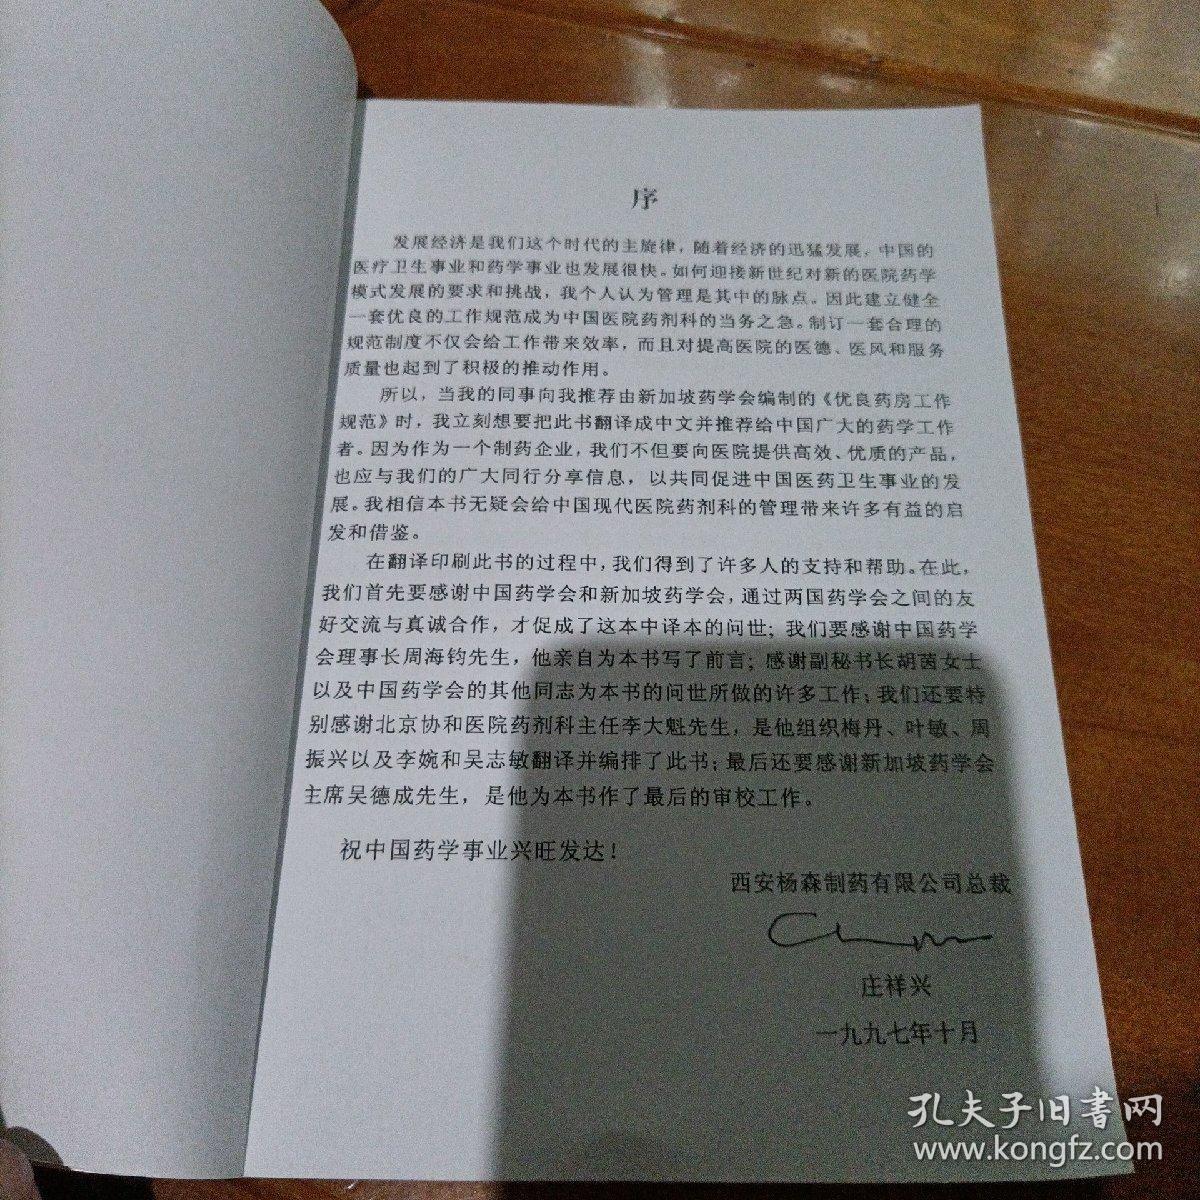 序
发展经济是我们这个时代的主旋律，随着经济的迅猛发展，中国的
医疗卫生事业和药学事业也发展很快。如何迎接新世纪对新的医院药学
模式发展的要求和挑战，我个人认为管理是其中的脉点。因此建立健全
一套优良的工作规范成为中国医院药剂科的当务之急。制订一套合理的
规范制度不仅会给工作带来效率，而且对提高医院的医德、医风和服务
质量也起到了积极的推动作用。
所以，当我的同事向我推荐由新加坡药学会编制的《优良药房工作
规范》时，我立刻想要把此书翻译成中文并推荐给中国广大的药学工作
者。因为作为一个制药企业，我们不但要向医院提供高效、优质的产品，
也应与我们的广大同行分享信息，以共同促进中国医药卫生事业的发
展。我相信本书无疑会给中国现代医院药剂科的管理带来许多有益的启
发和借鉴。
在翻译印刷此书的过程中，我们得到了许多人的支持和帮助。在此，
我们首先要感谢中国药学会和新加坡药学会，通过两国药学会之间的友
好交流与真诚合作，才促成了这本中译本的问世；我们要感谢中国药学
会理事长周海钧先生，他亲自为本书写了前言；感谢副秘书长胡茵女士
以及中国药学会的其他同志为本书的问世所做的许多工作；我们还要特
别感谢北京协和医院药剂科主任李大魁先生，是他组织梅丹、叶敏、周
振兴以及李婉和吴志敏翻译并编排了此书；最后还要感谢新加坡药学会
主席吴德成先生，是他为本书作了最后的审校工作。
祝中国药学事业兴旺发达！
西安杨森制药有限公司总裁
庄祥兴
一九九七年十月
孔夫子旧書网
www.kongfz.com